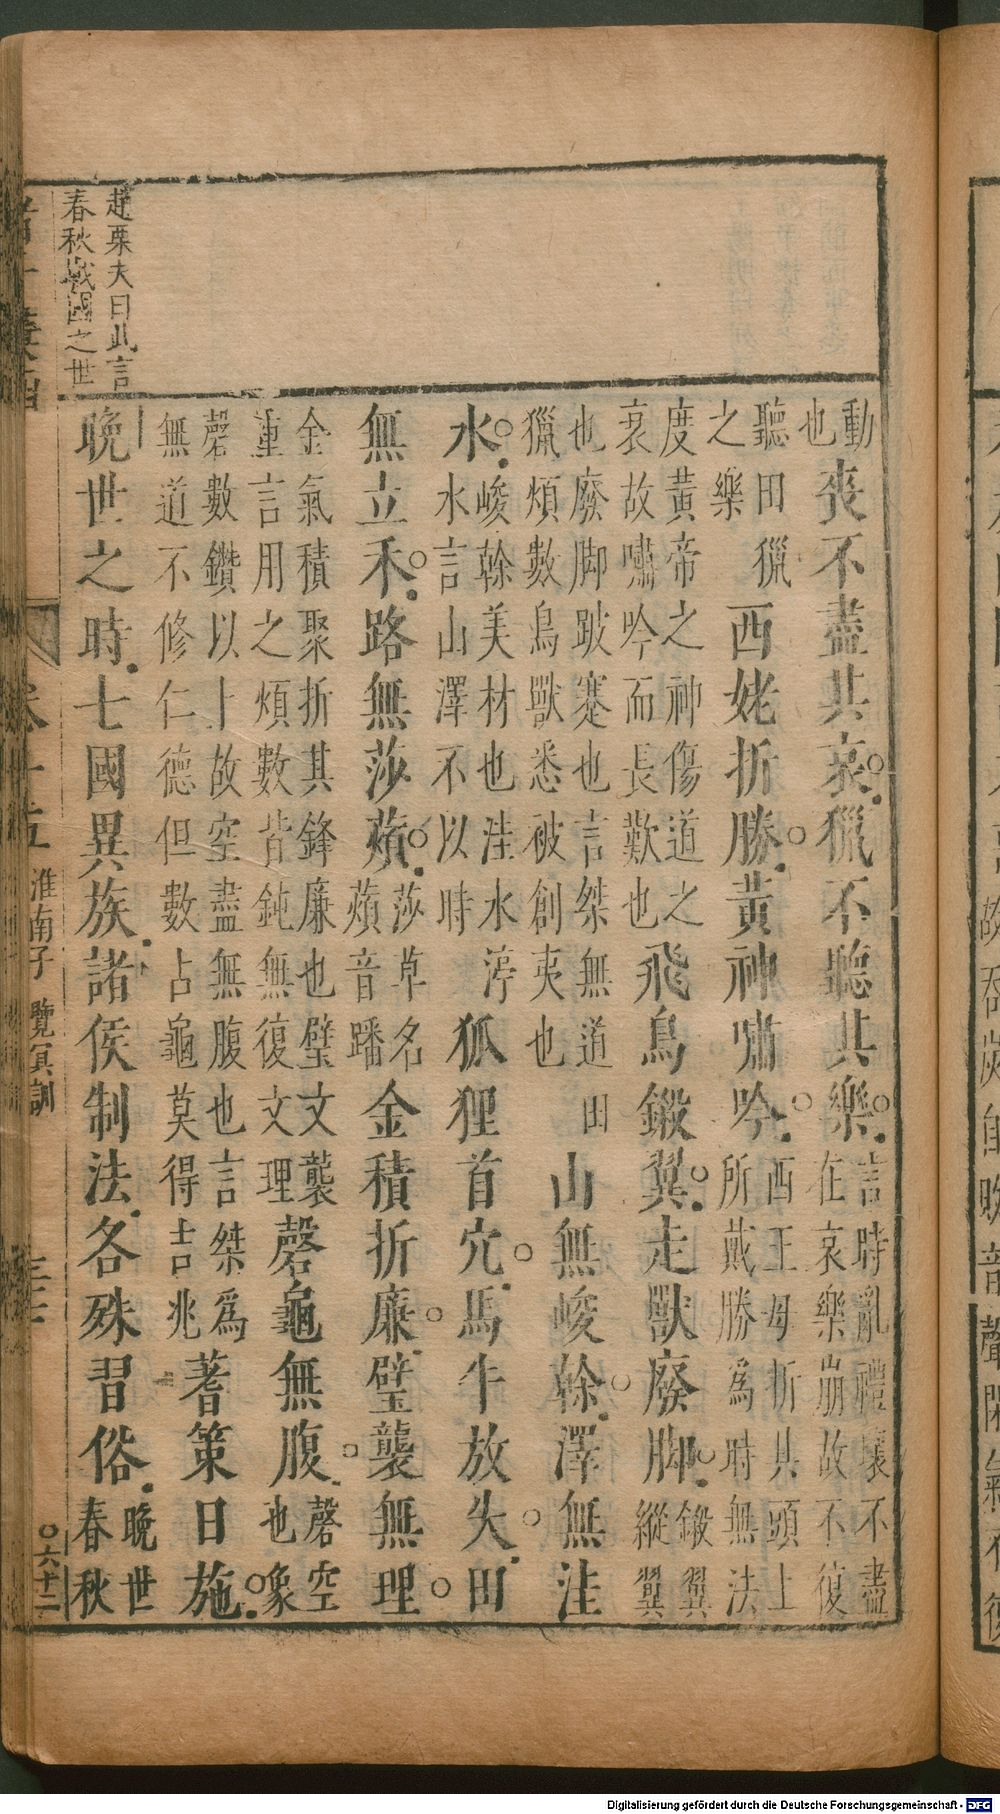 趙栗夫曰此言
春秋戰國之世
動也喪不盡其哀獵不聽其樂言時亂禮壞不盡在哀樂崩故不復
聽田獵之樂西姥折勝黃神嘯吟西王母折其頭上所戴勝為時無法
度黃帝之神傷道之衰故嘯吟而長歎也飛鳥鎩翼走獸廢脚鎩翼縱翼
也廢脚跛蹇也言桀無道田獵煩數鳥獸悉被創夷也山無峻榦澤無洼
水峻榦美材也洼水渟水言山澤不以時狐狸首穴馬牛放失田
無立禾路無莎薠莎草名薠音蹯金積折廉璧襲無理
金氣積聚折其鋒廉也璧文襲重言用之煩數皆鈍無復文理磬龜無腹磬空也象
磬數鑽以卜故空盡無腹也言桀為無道不修仁德但數占龜莫得吉兆蓍策日施
晚世之時七國異族諸侯制法各殊習俗晚世春秋
卷十五 淮南子 覽冥訓
六十二
Digitalisierung gefördert durch die Deutsche Forschungsgemeinschaft - DFG